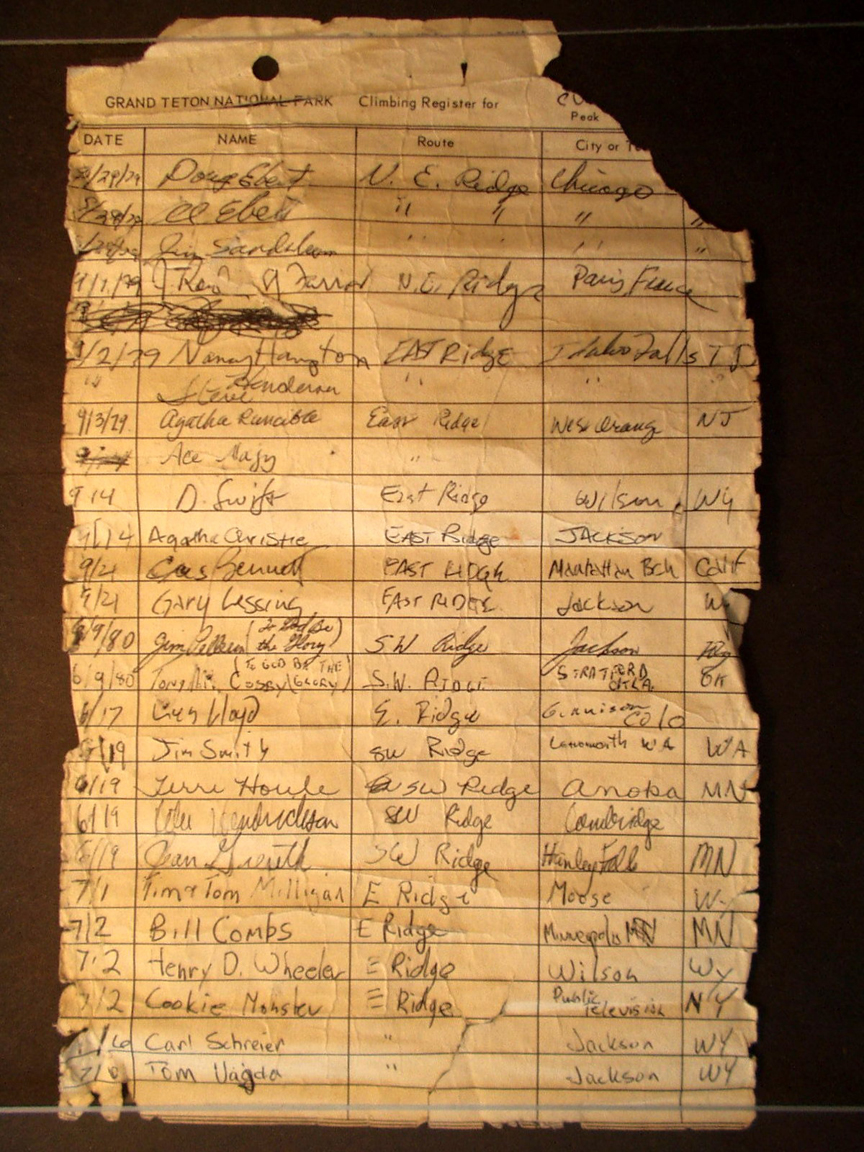 GRAND TETON NATIONAL PARK Climbing Register for
Peak
DATE NAME Route City or
8/29/79 Doug Ebert N. E. Ridge Chicago
Ebert " " " "
Jim " "
9/1/79 N.E. Ridge Paris France
9/2/79 Nancy EAST Ridge Idaho Falls ID
" Steve Henderson " "
9/3/79 Agatha Runcible East Ridge West Orange NJ
Ace Nagy "
9/4 D. Swift East Ridge Wilson, Wy
9/14 Agatha Christie EAST Ridge JACKSON
9/21 Bennett EAST RIDGE Manhattan Bch Calif
9/21 Gary Lessing EAST RIDGE Jackson W
6/9/80 Jim (To God Be the Glory) SW Ridge Jackson
6/9/80 Tony Cosby (TO GOD BE THE GLORY) S.W. RIDGE STRATFORD OKLA. OK
6/17 Lloyd E. Ridge Gunnison COlO
6/19 Jim Smith SW Ridge WA WA
6/19 Terri Houle SW Ridge Anoka MN
6/19 Hendrickson SW Ridge Cambridge
6/19 SW Ridge Hanley Falls MN
7/1 Tim & Tom Milligan E Ridge Moose W
7/2 Bill Combs E Ridge Minneapolis MN
7/2 Henry D. Wheeler E Ridge Wilson Wy
7/2 Cookie Monster E Ridge Public Television NY
Carl Schreier " Jackson WY
Tom Vajda " Jackson WY